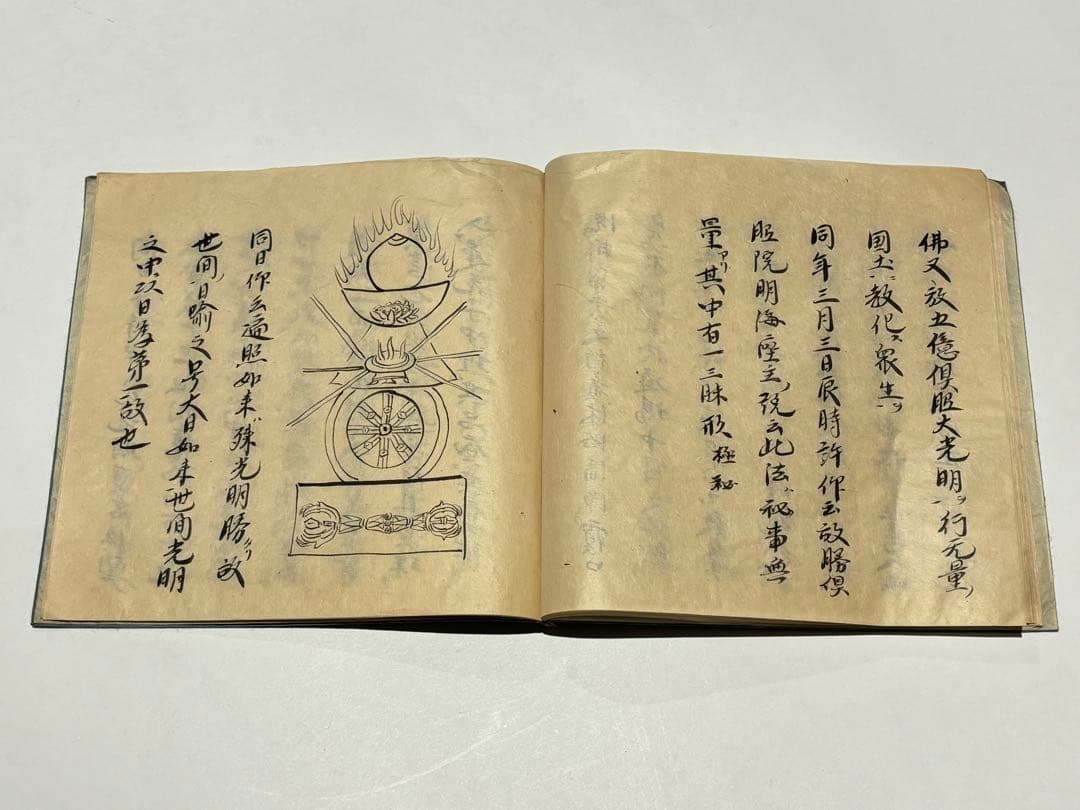 佛又放五億倶胝大光明ヲ行无量ノ
国土ニ教化ス衆生ヲ
同年三月三日辰時許仰云故勝倶
胝院明海座主ノ説云此法ハ秘事無
量アリ其中有一三昧形極秘
同日仰云遍照如来ハ殊光明勝タリ故
世間ノ日喩之号大日如来世間光明
之中以日為第一故也